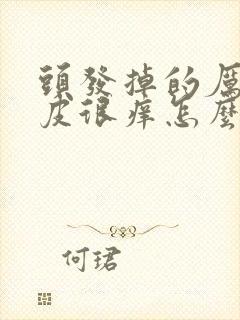 頭發掉的厲
皮很癢怎麼
何珺